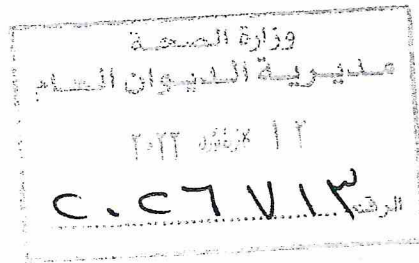 وزارة الصحة
مديرية الديوان العام
١٢ ٢٠٢٢
الرقم ٢٠٢٦٧١٣